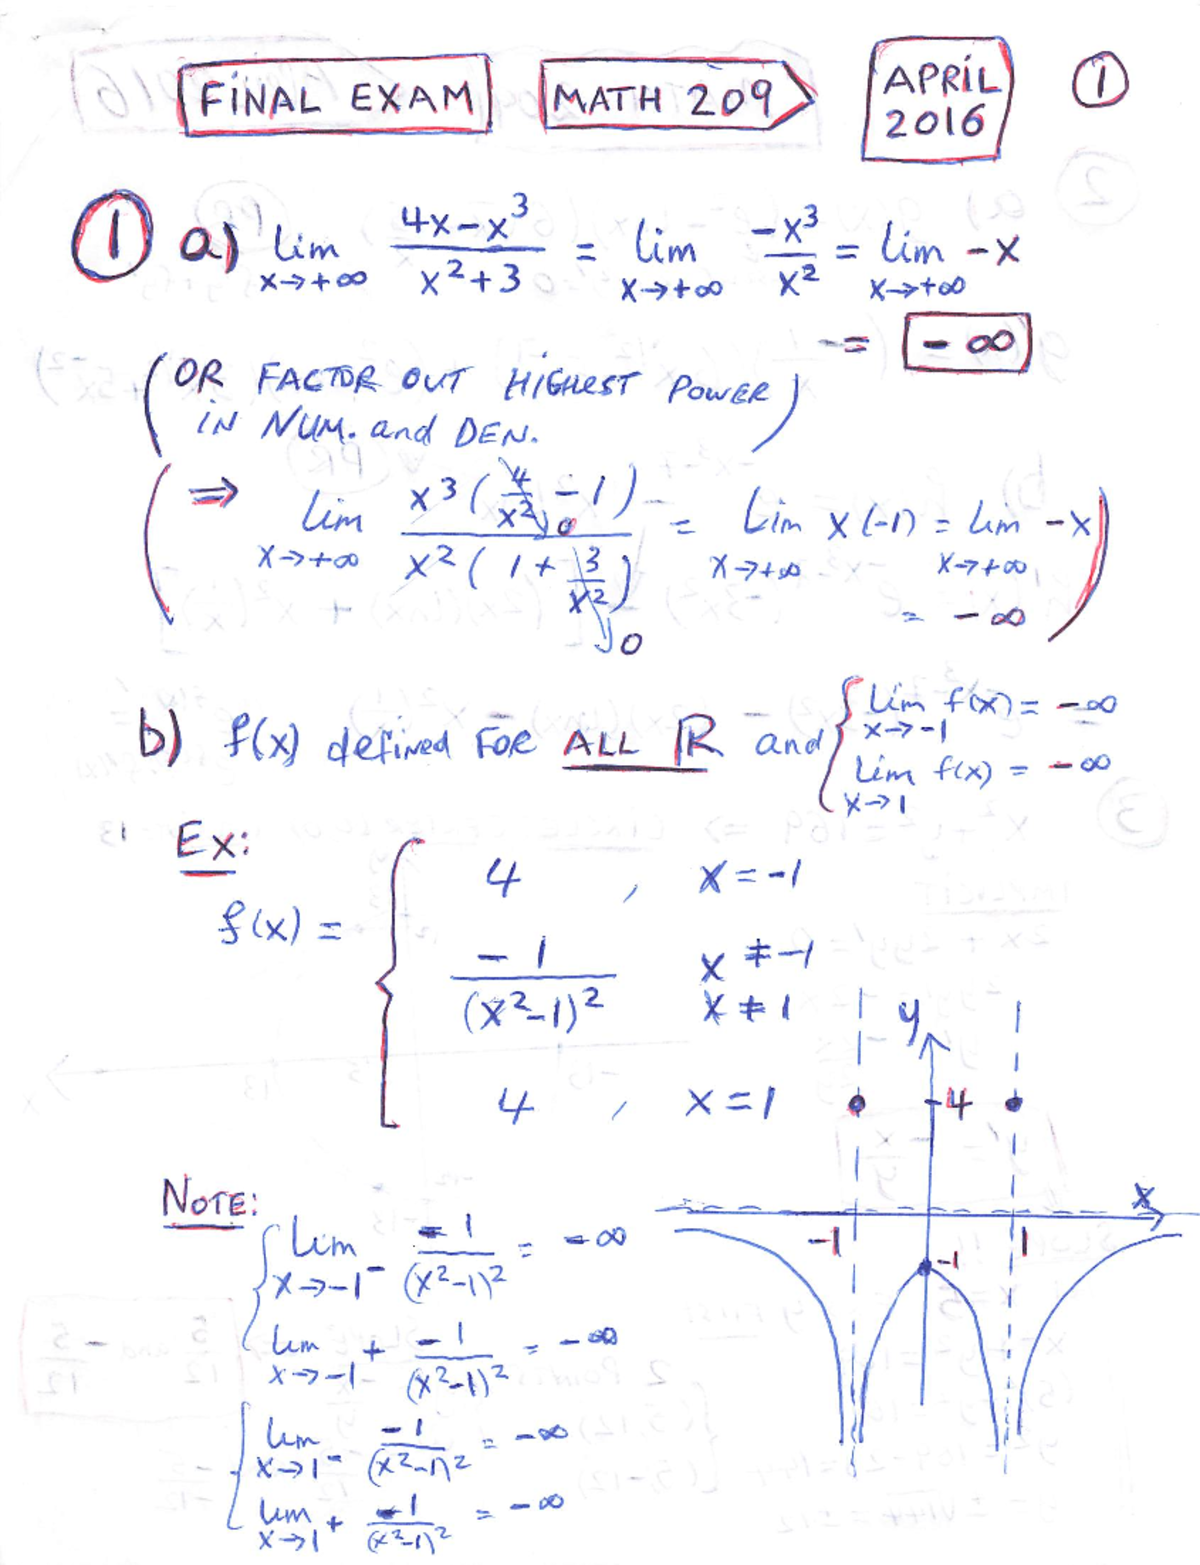 FINAL EXAM MATH 209 APRIL 2016 ①
① a) lim x→+∞ (4x-x³)/(x²+3) = lim x→+∞ -x³/x² = lim x→+∞ -x
= -∞
(OR FACTOR OUT HIGHEST POWER
IN NUM. and DEN.)
(⇒ lim x→+∞ x³(4/x² - 1)/x²(1 + 3/x²) = Lim x→+∞ x(-1) = lim x→+∞ -x
0
0
= -∞)
b) f(x) defined FOR ALL ℝ and { lim x→-1 f(x) = -∞
lim x→1 f(x) = -∞
Ex:
f(x) = { 4 , x = -1
-1/(x²-1)² x ≠ -1
x ≠ 1
4 , x = 1
y
4
x
-1 1
-1
NOTE:
{ lim x→-1⁻ -1/(x²-1)² = -∞
lim x→-1⁺ -1/(x²-1)² = -∞
{ lim x→1⁻ -1/(x²-1)² = -∞
lim x→1⁺ -1/(x²-1)² = -∞